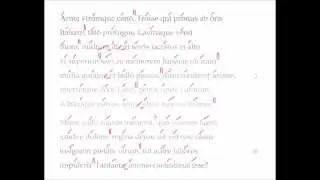 Arma virumque cano, Troiae qui primus ab oris
Italiam, fato profugus, Laviniaque venit
litora, multum ille et terris iactatus et alto
vi superum saevae memorem Iunonis ob iram;
multa quoque et bello passus, dum conderet urbem,
inferretque deos Latio, genus unde Latinum,
Albanique patres, atque altae moenia Romae.
Musa, mihi causas memora, quo numine laeso,
quidve dolens, regina deum tot volvere casus
insignem pietate virum, tot adire labores
impulerit. Tantaene animis caelestibus irae?